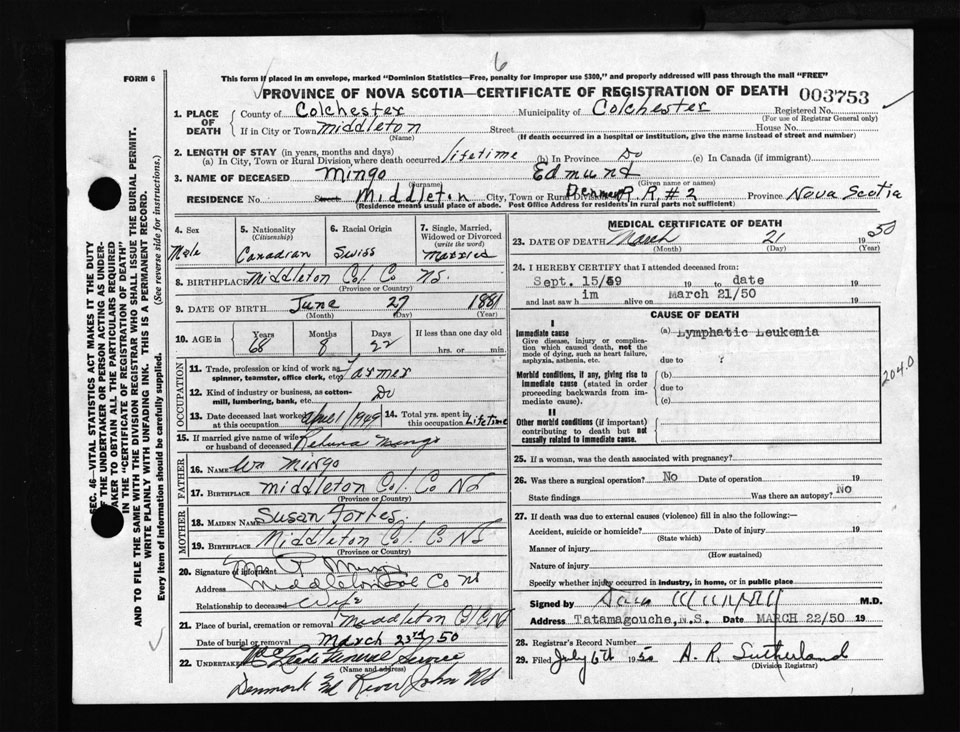 6
FORM 6
This form if placed in an envelope, marked "Dominion Statistics—Free, penalty for improper use $300," and properly addressed will pass through the mail "FREE"
PROVINCE OF NOVA SCOTIA—CERTIFICATE OF REGISTRATION OF DEATH 003753
1. PLACE OF DEATH
County of Colchester Municipality of Colchester Registered No.
(For use of Registrar General only)
If in City or Town Middleton Street House No.
(Name) (If death occurred in a hospital or institution, give the name instead of street and number)
2. LENGTH OF STAY (in years, months and days)
(a) In City, Town or Rural Division where death occurred lifetime (b) In Province Do (c) In Canada (if immigrant)
3. NAME OF DECEASED Mingo Edmund
(Surname) (Given name or names)
RESIDENCE No. Street Middleton City, Town or Rural Division R.R. #2 Province Nova Scotia
(Residence means usual place of abode. Post Office Address for residents in rural parts not sufficient)
4. Sex
Male
5. Nationality
(Citizenship)
Canadian
6. Racial Origin
Swiss
7. Single, Married, Widowed or Divorced
(write the word)
Married
8. BIRTHPLACE Middleton Col. Co NS.
(Province or Country)
9. DATE OF BIRTH June 27 1881
(Month) (Day) (Year)
10. AGE in Years Months Days If less than one day old
68 8 22 hrs. or min.
OCCUPATION
11. Trade, profession or kind of work as spinner, teamster, office clerk, etc. Farmer
12. Kind of industry or business, as cotton-mill, lumbering, bank, etc. Do
13. Date deceased last worked at this occupation April 1949 14. Total yrs. spent in this occupation Lifetime
15. If married give name of wife or husband of deceased Mingo
FATHER
16. NAME Mingo
17. BIRTHPLACE Middleton Col. Co NS
(Province or Country)
MOTHER
18. MAIDEN NAME Susan Forbes.
19. BIRTHPLACE Middleton Col. Co NS
(Province or Country)
20. Signature of informant Mrs. Mingo
Address Middleton Col Co NS
Relationship to deceased Wife
21. Place of burial, cremation or removal Middleton
Date of burial or removal March 23rd/50
22. UNDERTAKER Funeral Service
(Name and address)
Denmark River John NS
MEDICAL CERTIFICATE OF DEATH
23. DATE OF DEATH March 21 1950
(Month) (Day) (Year)
24. I HEREBY CERTIFY that I attended deceased from:
Sept. 15/49 19 to date 19
and last saw h im alive on March 21/50 19
CAUSE OF DEATH
I
Immediate cause
Give disease, injury or complication which caused death, not the mode of dying, such as heart failure, asphyxia, asthenia, etc.
(a) Lymphatic Leukemia
due to ?
Morbid conditions, if any, giving rise to immediate cause (stated in order proceeding backwards from immediate cause).
(b)
due to
(c)
II
Other morbid conditions (if important) contributing to death but not causally related to immediate cause.
204.0
25. If a woman, was the death associated with pregnancy?
26. Was there a surgical operation? No Date of operation 19
State findings Was there an autopsy? No
27. If death was due to external causes (violence) fill in also the following:—
Accident, suicide or homicide? Date of injury 19
(State which)
Manner of injury
(How sustained)
Nature of injury
Specify whether injury occurred in industry, in home, or in public place
Signed by M.D.
Address Tatamagouche, N.S. Date MARCH 22/50 19
28. Registrar's Record Number
29. Filed July 6th 1950 A. R. Sutherland
(Division Registrar)
SEC. 46—VITAL STATISTICS ACT MAKES IT THE DUTY OF THE UNDERTAKER OR PERSON ACTING AS UNDERTAKER TO OBTAIN ALL THE PARTICULARS REQUIRED IN THE "CERTIFICATE OF REGISTRATION OF DEATH"
AND TO FILE THE SAME WITH THE DIVISION REGISTRAR WHO SHALL ISSUE THE BURIAL PERMIT.
WRITE PLAINLY WITH UNFADING INK. THIS IS A PERMANENT RECORD.
Every item of information should be carefully supplied. (See reverse side for instructions.)